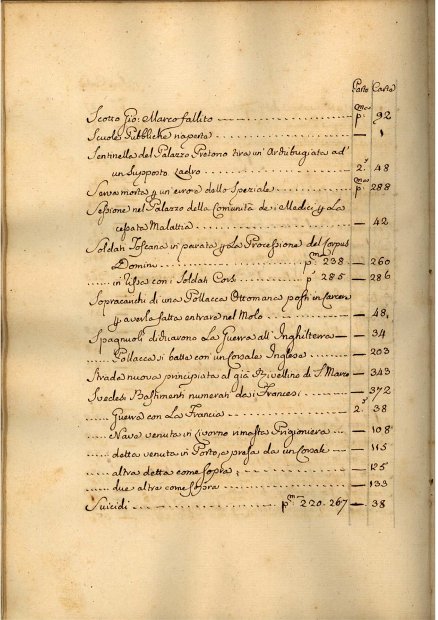 Parte Carte
Scotto Gio: Marco fallito pma 92
Scuole Pubbliche riaperte 1
Sentinella del Palazzo Pretorio tira un' Archibugiata ad'
un Supposto Ladro 2a 48
Serva morta p un' errore dello Speziale pma 288
Sessione nel Palazzo della Comunità de i Medici p La
cessata Malattia 42
Soldati Toscana in parata p La Processione del Corpus
Domini pma 238 260
in rissa con i Soldati Corsi p 285 286
Sopracarichi di una Pollacca Ottomana posti in Carcere
p averla fatta entrare nel Molo 48
Spagnuoli dichiarono La Guerra all' Inghilterra 34
Pollacca si batte con un Corsale Inglese 203
Strada nuova principiata al già Rivellino di S Marco 343
Svedesi Bastimenti numerati da i Francesi 372
Guerra con La Francia 2a 38
Nave venuta in Livorno rimasta Prigioniera 108
detta venuta in Porto, e presa da un Corsale 115
altra detta come sopra 125
due altre come sopra 133
Suicidi pma 220. 267 38